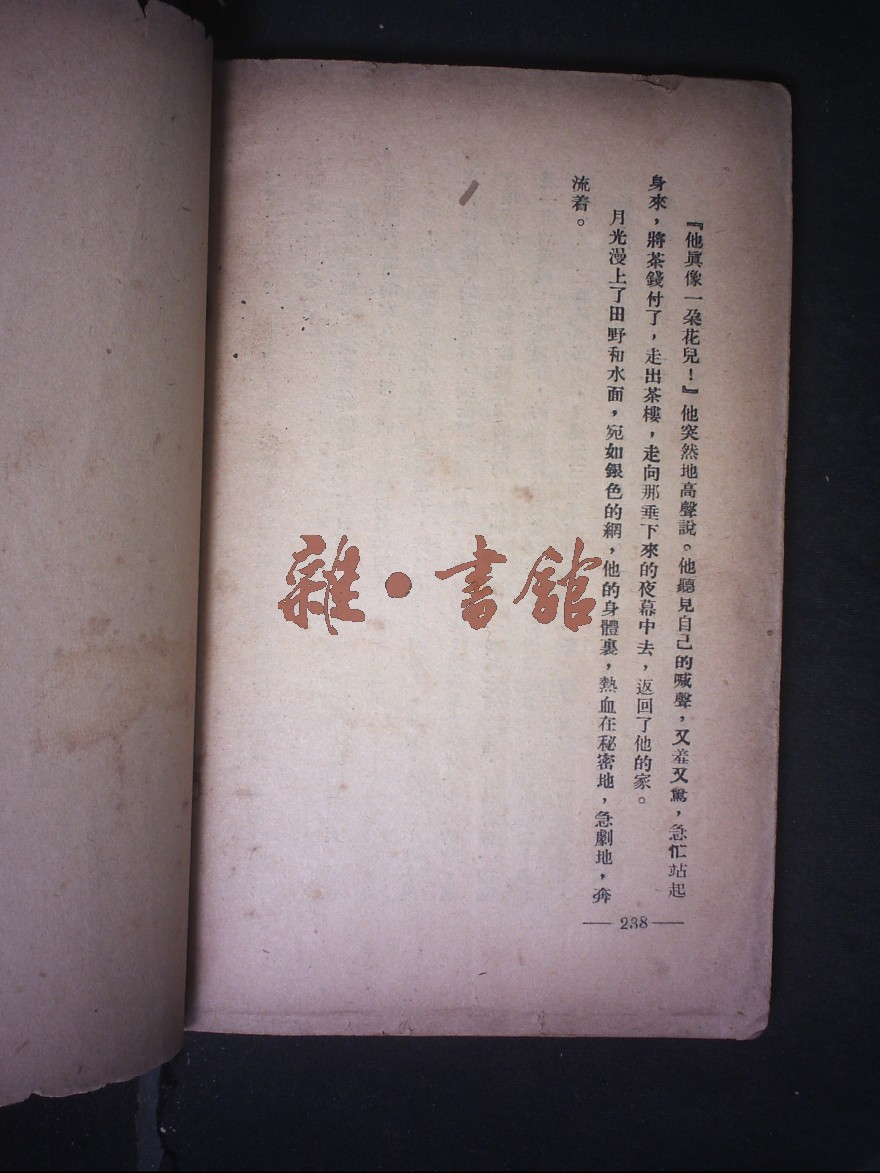 『他眞像一朶花兒！』他突然地高聲說。他聽見自己的喊聲，又羞又驚，急忙站起
身來，將茶錢付了，走出茶樓，走向那垂下來的夜幕中去，返回了他的家。
月光漫上了田野和水面，宛如銀色的網，他的身體裏，熱血在秘密地，急劇地，奔
流着。
— 238 —
雜·書館